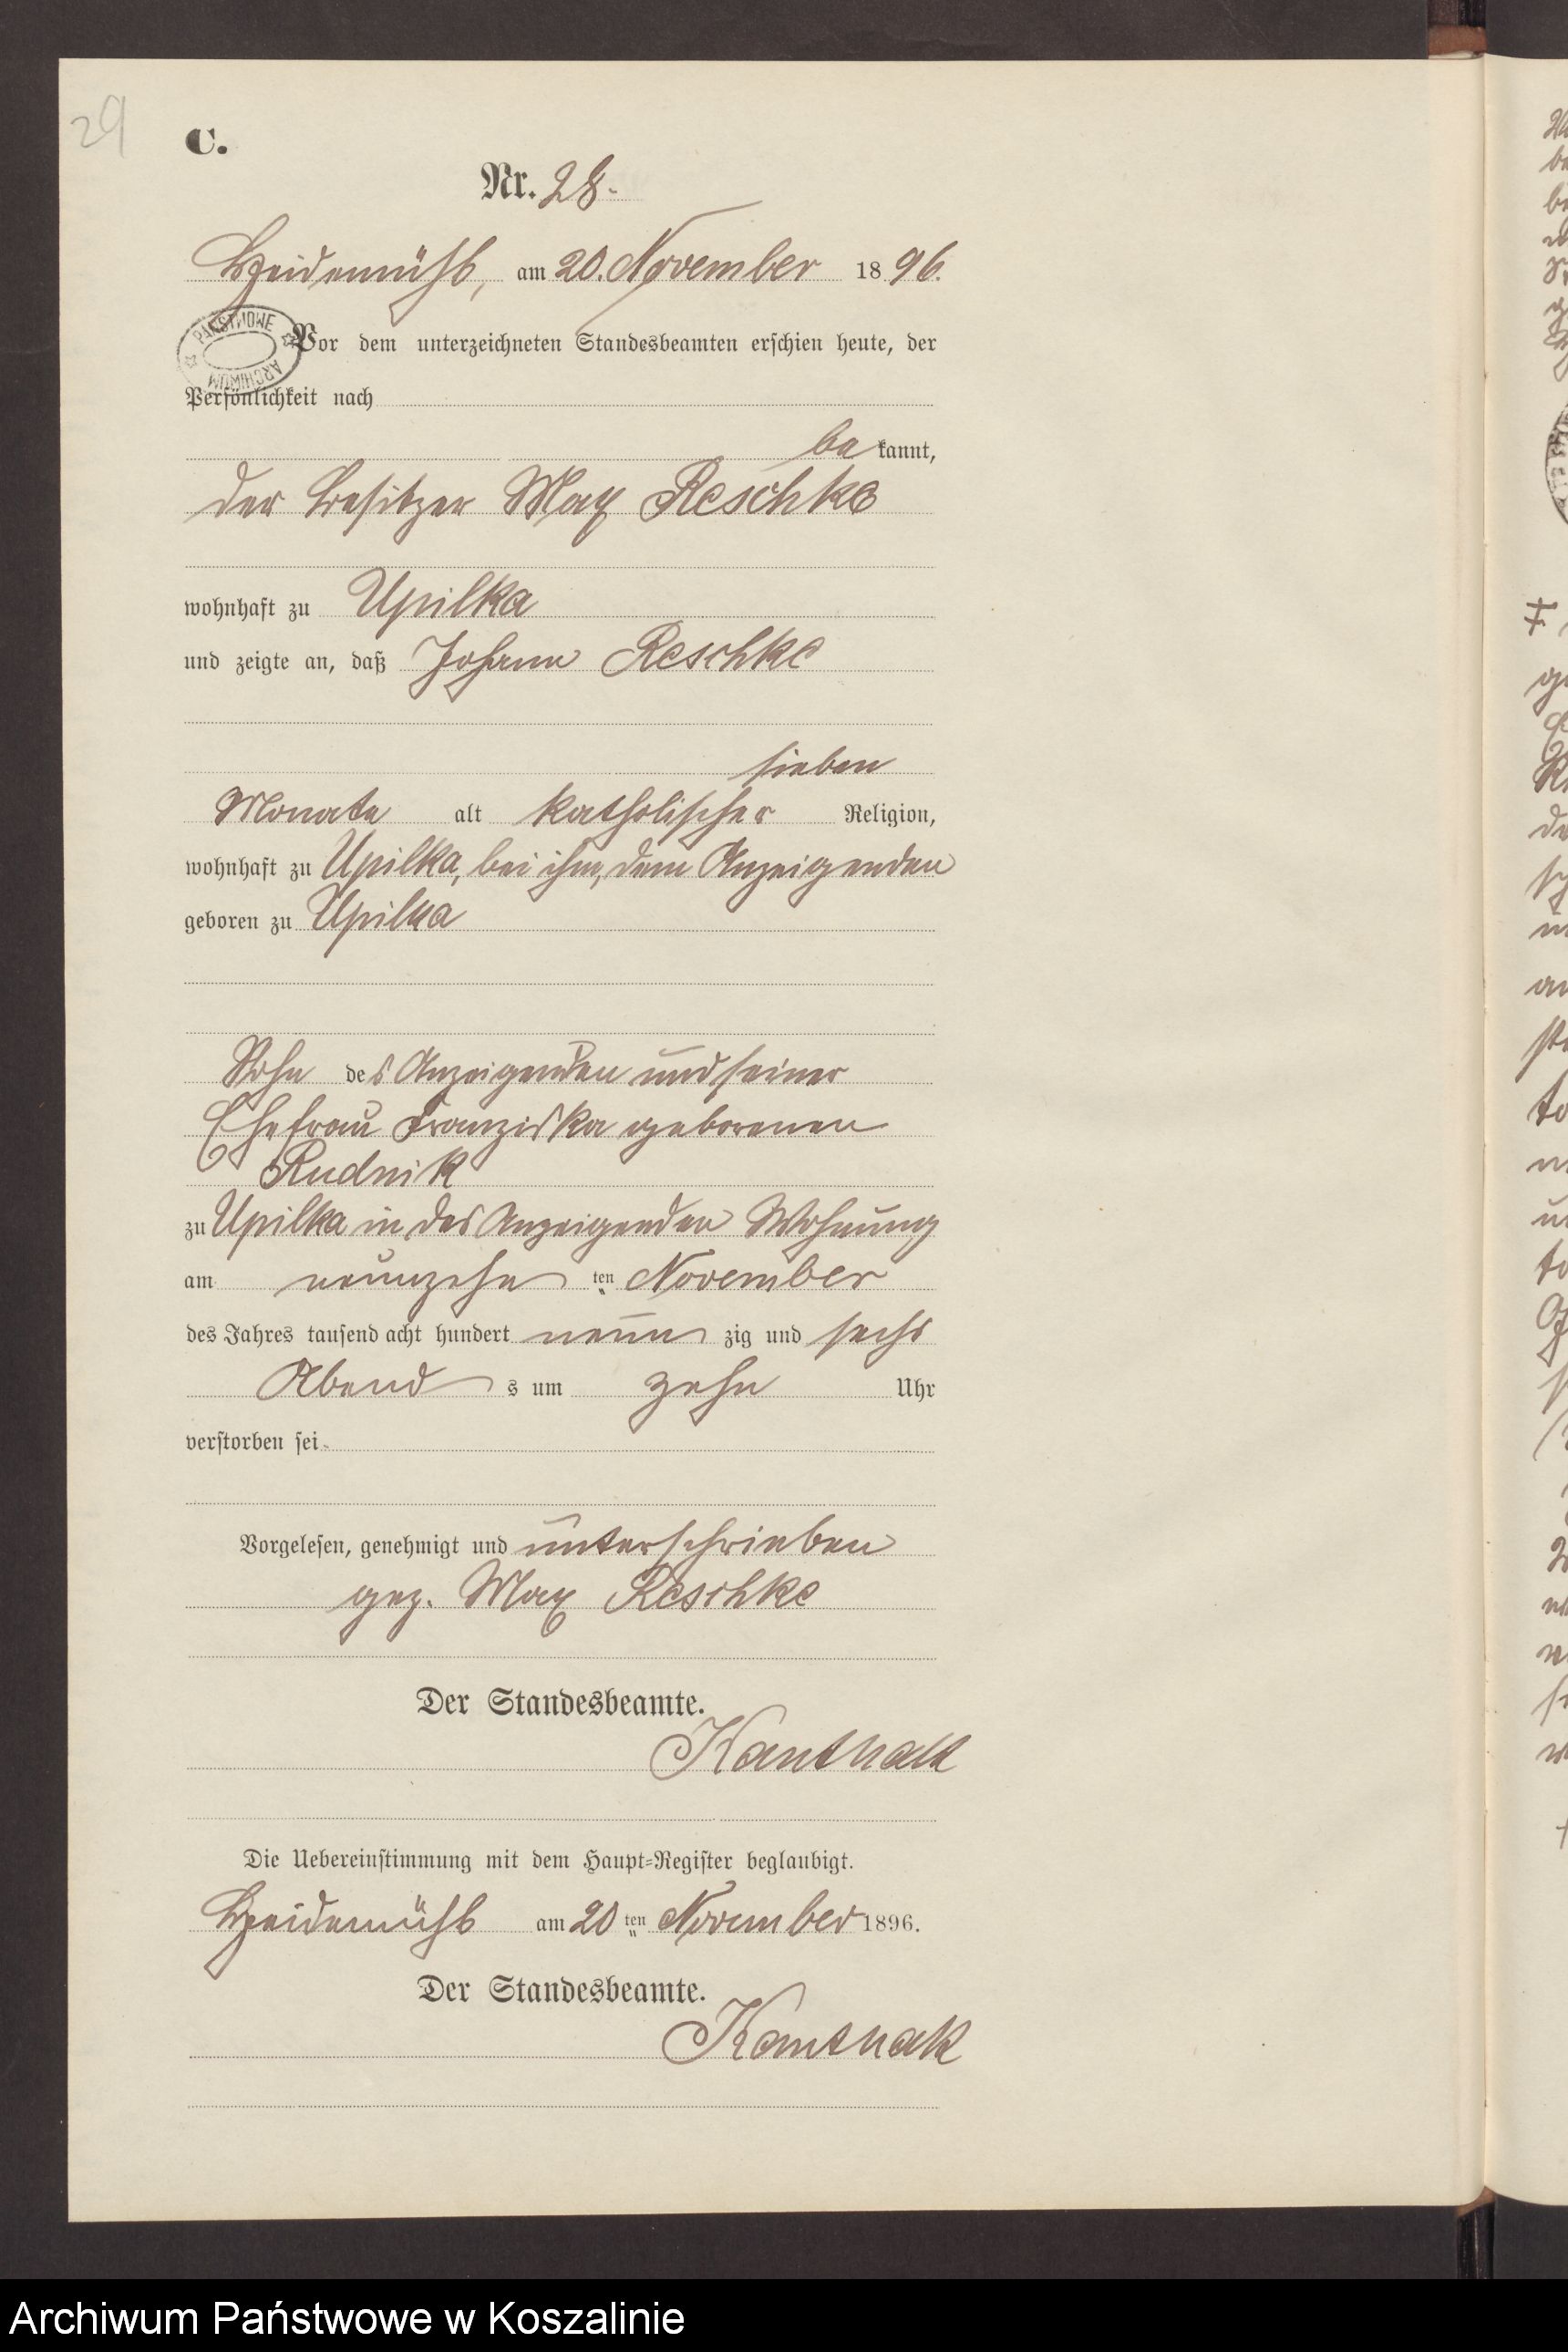 29
C.
Nr. 28.
Heidemühl, am 20. November 1896.
PAŃSTWOWE ARCHIWUM
Vor dem unterzeichneten Standesbeamten erschien heute, der
Persönlichkeit nach
bekannt,
der Besitzer Max Reschke
wohnhaft zu Upilka
und zeigte an, daß Johann Reschke
sieben
Monate alt katholischer Religion,
wohnhaft zu Upilka, bei ihm, dem Anzeigenden
geboren zu Upilka
Sohn des Anzeigenden und seiner
Ehefrau Franziska geborenen
Rudnik
zu Upilka in des Anzeigenden Wohnung
am neunzehn ten November
des Jahres tausend acht hundert neun zig und sechs
Abend s um zehn Uhr
verstorben sei.
Vorgelesen, genehmigt und unterschrieben
gez. Max Reschke
Der Standesbeamte.
Kanthak
Die Uebereinstimmung mit dem Haupt=Register beglaubigt.
Heidemühl am 20 ten November 1896.
Der Standesbeamte.
Kanthak
Archiwum Państwowe w Koszalinie